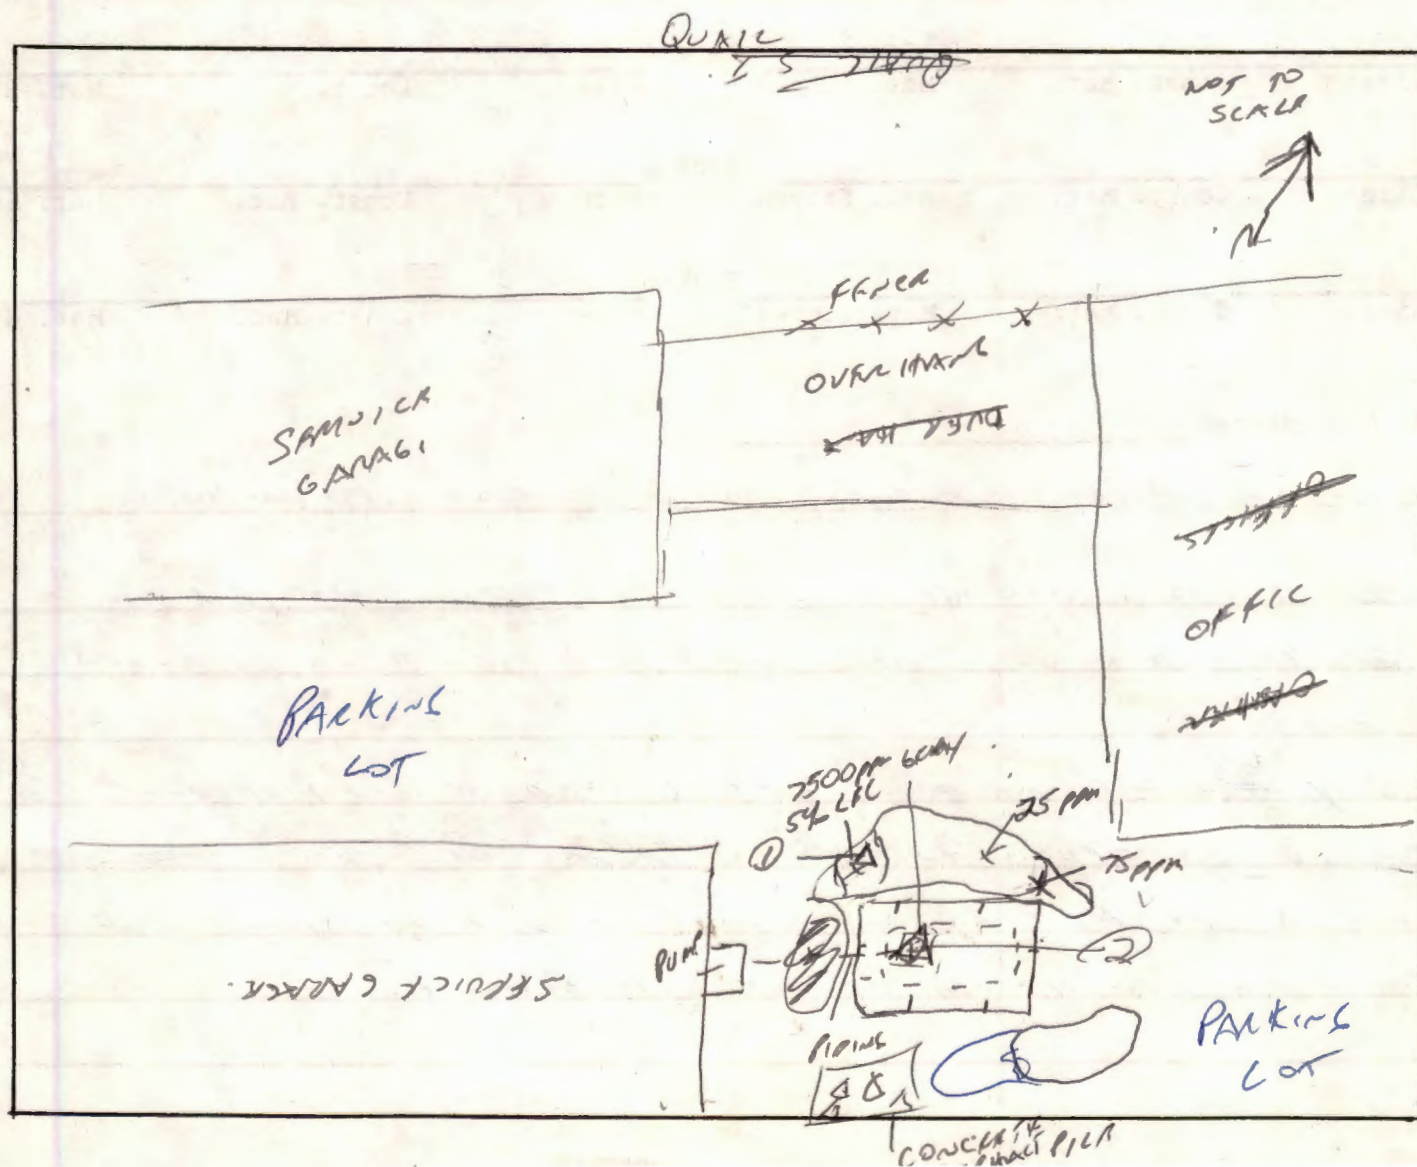 QUAIL
QUAIL ST
NOT TO
SCALE
N
FENCE
OVERHANG
OVER HA
SERVICE
GARAGE
OFFICES
OFFIC
PARKING
LOT
7500 ppm
5% LEL
25 ppm
①
75 ppm
PUMP
②
SERVICE GARAGE
PIPING
PARKING
LOT
CONCRETE
PILE